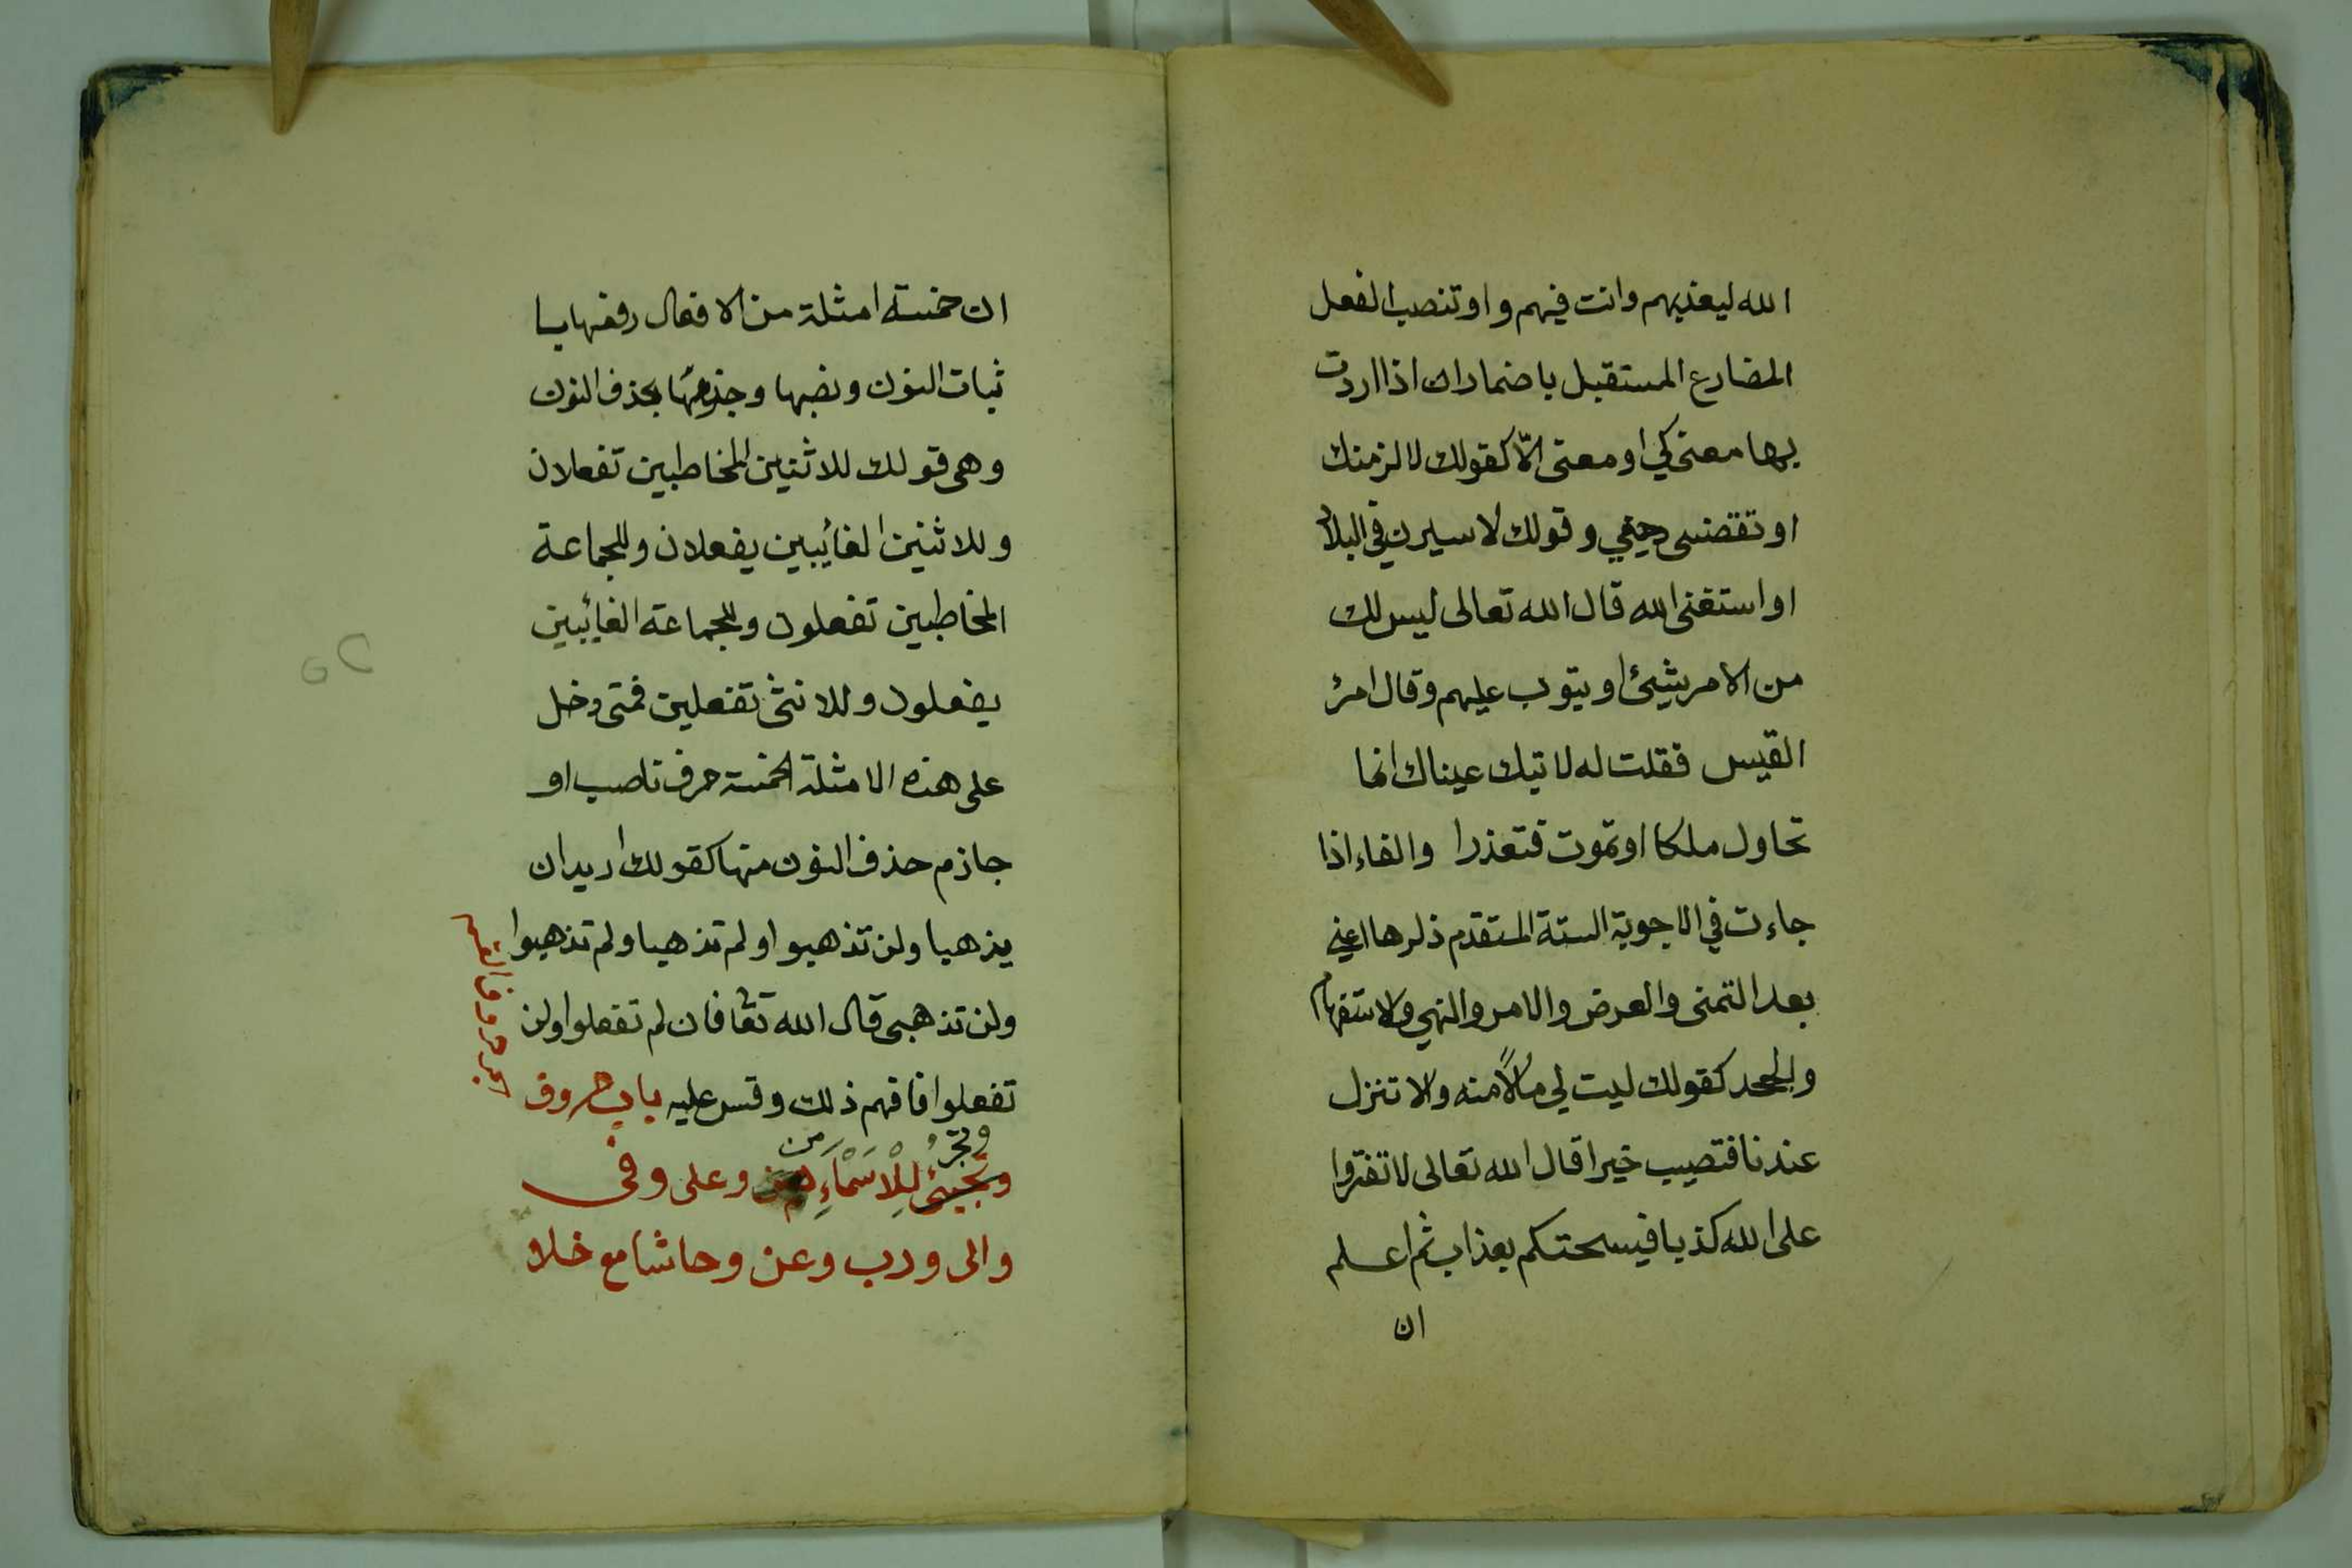 الله ليعذبهم وانت فيهم واو تنصب الفعل
المضارع المستقبل باضمار ان اذا اردت
بها معنى كي او معنى الّا كقولك لا لزمنك
او تقضنى حقي وقولك لا سيرن في البلاد
او استغنى الله قال الله تعالى ليس لك
من الامر شيئ او يتوب عليهم وقال امرئ
القيس فقلت له لا تبك عيناك انما
تحاول ملكا او تموت فتعذرا والفاء اذا
جاءت في الاجوبة الستة المتقدم ذكرها اعني
بعد التمنى والعرض والامر والنهي والاستفهام
والجحد كقولك ليت لي مالًا منه والا تنزل
عندنا فتصيب خيرا قال الله تعالى لا تفتروا
على الله كذبا فيسحتكم بعذاب ثم اعلم
ان
ان خمسة امثلة من الافعال رفعها با
ثبات النون ونصبها وجزمها بحذف النون
وهى قولك للاثنين المخاطبين تفعلان
وللاثنين الغائبين يفعلان وللجماعة
المخاطبين تفعلون وللجماعة الغائبين
يفعلون وللانثى تفعلين فمتى دخل
على هذه الامثلة الخمسة حرف ناصب او
جازم حذف النون منها كقولك اريد ان
يذهبا ولن تذهبوا ولم تذهبا ولم تذهبوا
ولن تذهبى قال الله تعا فان لم تفعلوا ولن
تفعلوا فافهم ذلك وقس عليه باب حروف
وتجرُّ من
وتجيئ للْاسَمْاءِ وعلى وفى
والى ورب وعن وحاشا مع خلا
الجر حروف القسم
٥٢